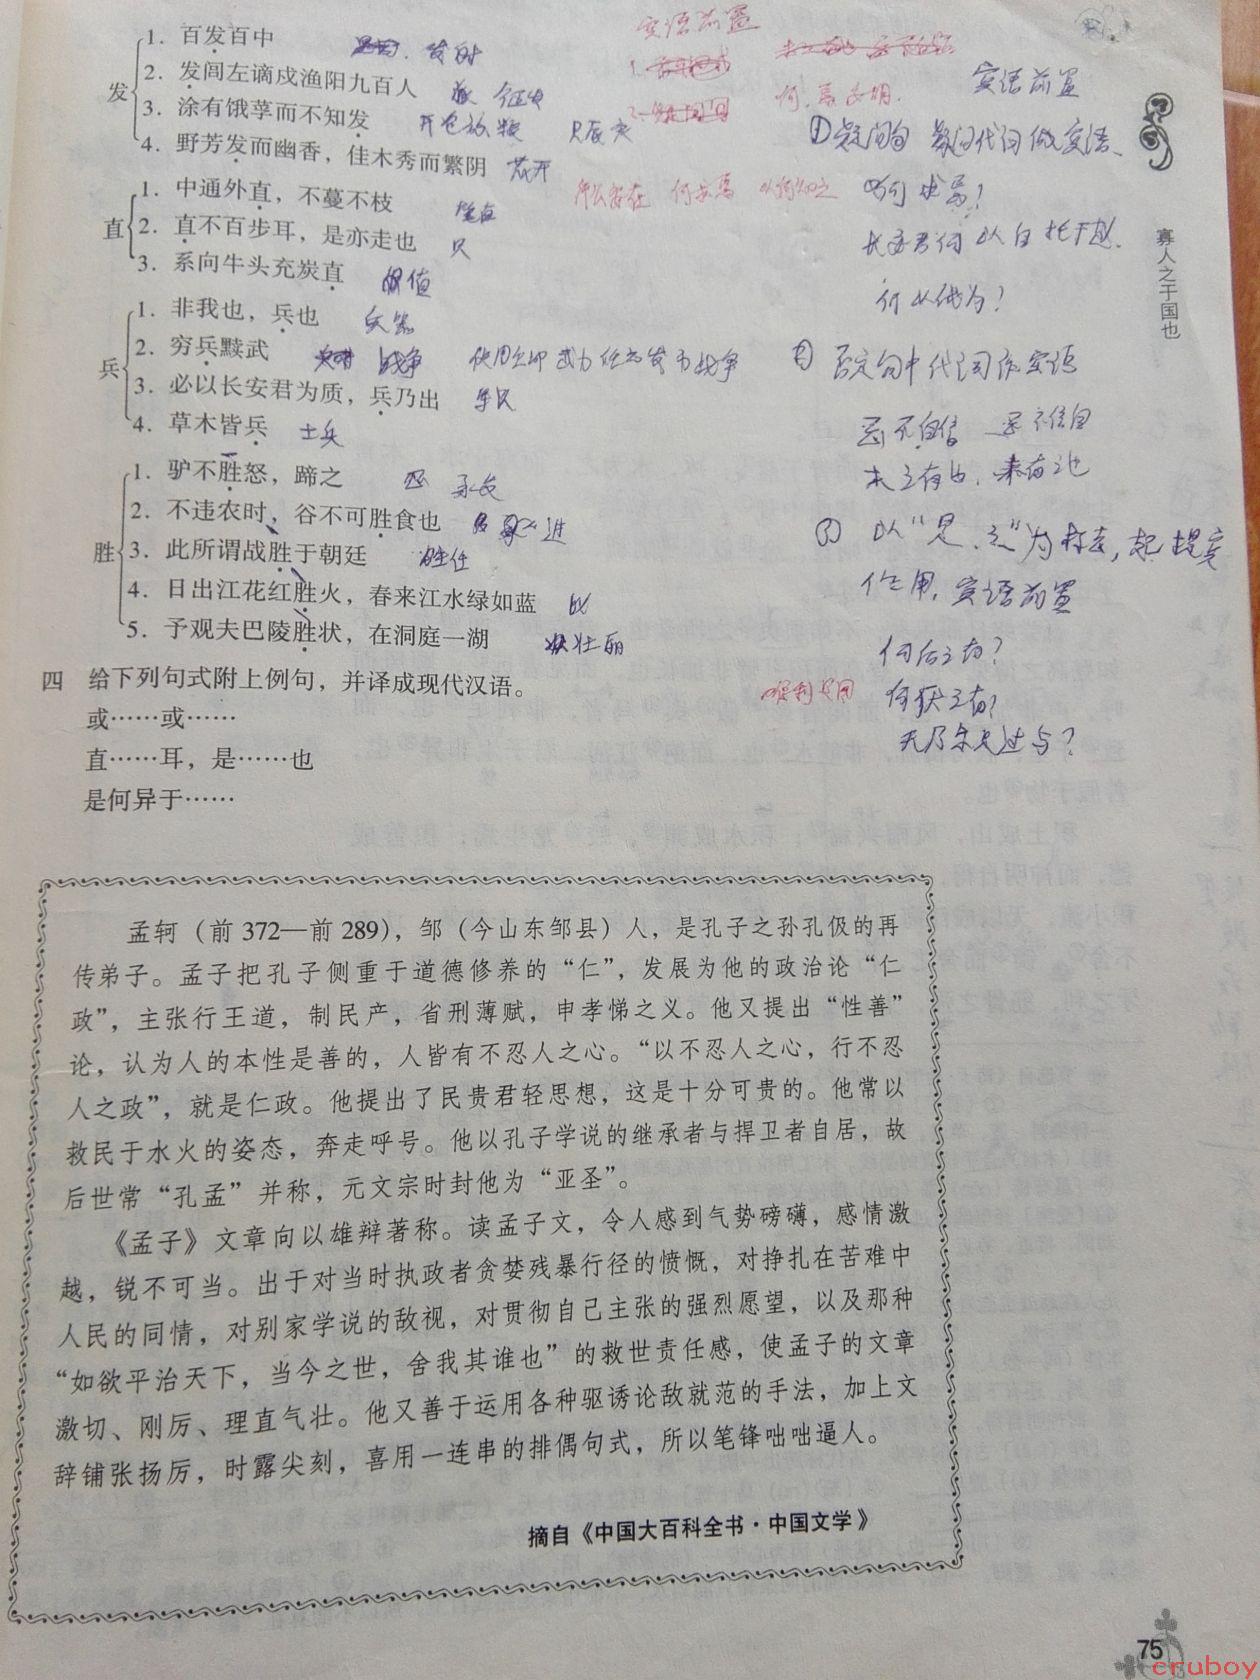 发
1. 百发百中
2. 发闾左谪戍渔阳九百人
3. 涂有饿莩而不知发
4. 野芳发而幽香，佳木秀而繁阴 花开
直
1. 中通外直，不蔓不枝
2. 直不百步耳，是亦走也 只
3. 系向牛头充炭直 价值
兵
1. 非我也，兵也 兵器
2. 穷兵黩武 战争
3. 必以长安君为质，兵乃出
4. 草木皆兵 士兵
胜
1. 驴不胜怒，蹄之
2. 不违农时，谷不可胜食也
3. 此所谓战胜于朝廷 胜任
4. 日出江花红胜火，春来江水绿如蓝 比
5. 予观夫巴陵胜状，在洞庭一湖 壮丽
宾语前置
宾语前置
①疑问句 疑问代词做宾语、
何以战为？
② 否定句中代词作宾语
忌不自信
未之有也
③ 以“是、之”为标志，起提宾
作用，宾语前置
何后之有？
何厌之有？
无乃尔是过与？
四 给下列句式附上例句，并译成现代汉语。
或……或……
直……耳，是……也
是何异于……
孟轲（前372—前289），邹（今山东邹县）人，是孔子之孙孔伋的再
传弟子。孟子把孔子侧重于道德修养的“仁”，发展为他的政治论“仁
政”，主张行王道，制民产，省刑薄赋，申孝悌之义。他又提出“性善”
论，认为人的本性是善的，人皆有不忍人之心。“以不忍人之心，行不忍
人之政”，就是仁政。他提出了民贵君轻思想，这是十分可贵的。他常以
救民于水火的姿态，奔走呼号。他以孔子学说的继承者与捍卫者自居，故
后世常“孔孟”并称，元文宗时封他为“亚圣”。
《孟子》文章向以雄辩著称。读孟子文，令人感到气势磅礴，感情激
越，锐不可当。出于对当时执政者贪婪残暴行径的愤慨，对挣扎在苦难中
人民的同情，对别家学说的敌视，对贯彻自己主张的强烈愿望，以及那种
“如欲平治天下，当今之世，舍我其谁也”的救世责任感，使孟子的文章
激切、刚厉、理直气壮。他又善于运用各种驱诱论敌就范的手法，加上文
辞铺张扬厉，时露尖刻，喜用一连串的排偶句式，所以笔锋咄咄逼人。
摘自《中国大百科全书·中国文学》
寡人之于国也
75
cruboy